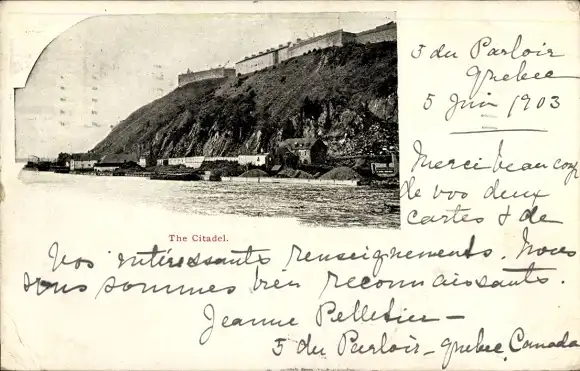 5 du Parloir
Quebec
5 Juin 1903
Merci beaucoup
de vos deux
cartes & de
The Citadel.
vos intéressants renseignements. Nous
sommes bien reconnaissants.
Jeanne Pelletier -
5 du Parloir - Quebec, Canada